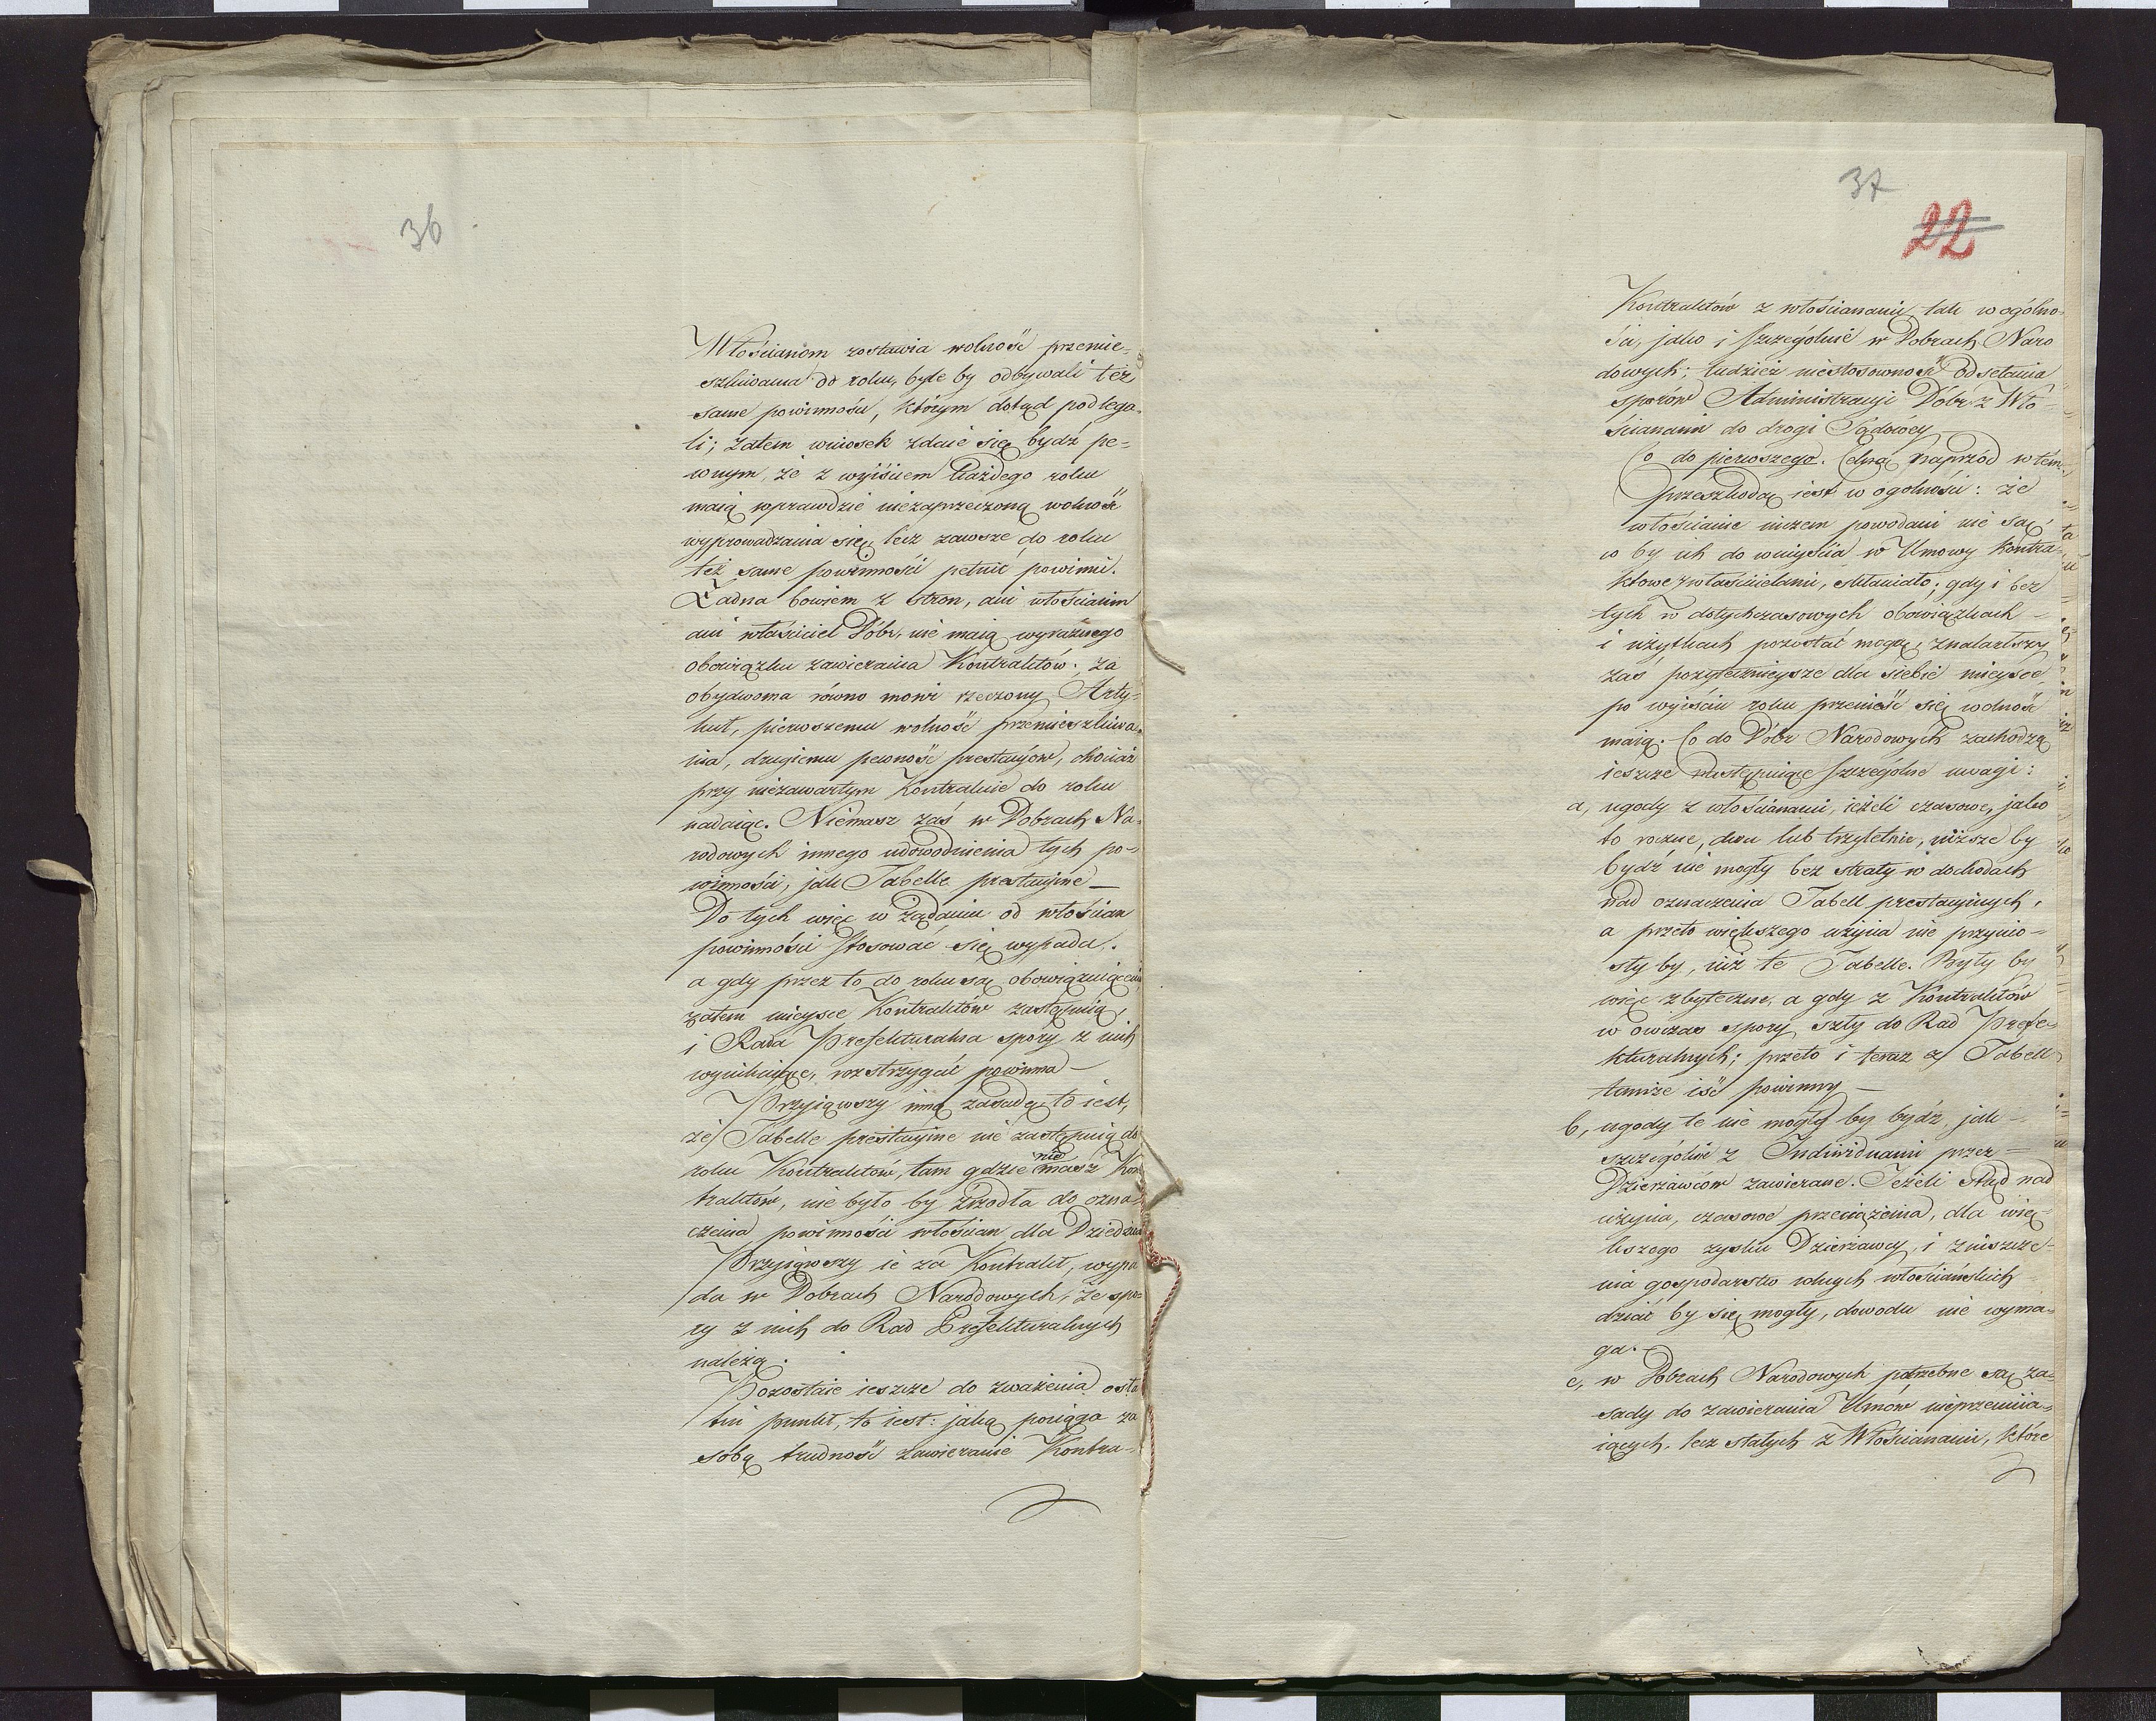 36
Włościanom zostawia wolność przemie-
szkiwania do roku, byle by odbywali też
same powinności, którym dotąd podlega-
li; zatem wniosek zdaie się bydź pe-
wnym, że z wyiściem każdego roku
maią wprawdzie niezaprzeczoną wolność
wyprowadzania się, lecz zawsze do roku
też same powinności pełnić powinni.
Żadna bowiem z stron, ani włościanin
ani właściciel Dóbr, nie maią wyraźnego
obowiązku zawierania Kontraktów. Za
obydwoma równo mowi rzeczony Arty-
kuł, pierwszemu wolność przemieszkiwa-
nia, drugiemu pewność prestacyów, chociaż
przy niezawartym Kontrakcie do roku
nadaiąc. Niemasz zaś w Dobrach Na-
rodowych innego udowodnienia tych po-
winności, jak Tabelle prestacyjne —
Do tych więc w żądaniu od włościan
powinności stosować się wypada.
a gdy przez to do roku są obowiązuiącemi
zatem mieysce Kontraktów zastępuią,
i Rada Prefekturalna spory z nich
wynikaiące, rozstrzygać powinna —
Przyiąwszy inną zasadę, to iest,
że Tabelle prestacyine nie zastępuią do
roku Kontraktów, tam gdzie nie masz Kon
traktów, nie było by źrzodła do ozna-
czenia powinności włościan dla Dziedzica
Przyiąwszy ie za Kontrakt, wypa
da w Dobrach Narodowych, że spo-
ry z nich do Rad Prefekturalnych
należą.
Pozostaie ieszcze do zważenia osta
tni punkt, to iest: jaką pociąga za
sobą trudność zawieranie Kontra-
37
22
Kontraktów z włościanami, tak w ogólno-
ści, jako i szczególnie w Dobrach Naro
dowych; tudzież niestosowność odsełania
sporów Administracyi Dóbr z Wło-
ścianami do drogi Sądowey —
Co do pierwszego. Celną naprzód w tém
przeszkodą iest w ogolności: że
włościanie niczem powodani nie są,
co by ich do wniyścia w Umowy Kontra-
ktowe z właścicielami, skłaniało; gdy i bez
tych w dotychczasowych obowiązkach —
i użytkach pozostać mogą, znalazłszy
zaś pożytecznieysze dla siebie mieysce
po wyiściu roku przenieść się wolność
maią. Co do Dóbr Narodowych zachodzą
ieszcze następuiące szczególne uwagi:
a, ugody z włościanami, ieżeli czasowe, jako
to roczne, dwu lub trzyletnie, niższe by
bydź nie mogły bez straty w dochodach
nad oznaczenia Tabell prestacyinych,
a przeto większego użycia nie przynio-
sły by, niż te Tabelle. Były by
więc zbyteczne, a gdy z Kontraktów
w ówczas spory szły do Rad Prefe-
kturalnych; przeto i teraz z Tabell
tamże iść powinny —
b, ugody te nie mogły by bydź, jak —
szczególnie z Individuami przez —
Dzierżawców zawierane. Jeżeli stąd nad
użycia, czasowe przeciążenia, dla wię-
kszego zysku Dzierżawcy, i zniszcze-
nia gospodarstw rolnych włościańskich
dziać by się mogły, dowodu nie wyma-
ga.
c, w Dobrach Narodowych potrzebne są za-
sady do zawierania Umów nieprzemiia-
iących, lecz stałych z Włościanami, które